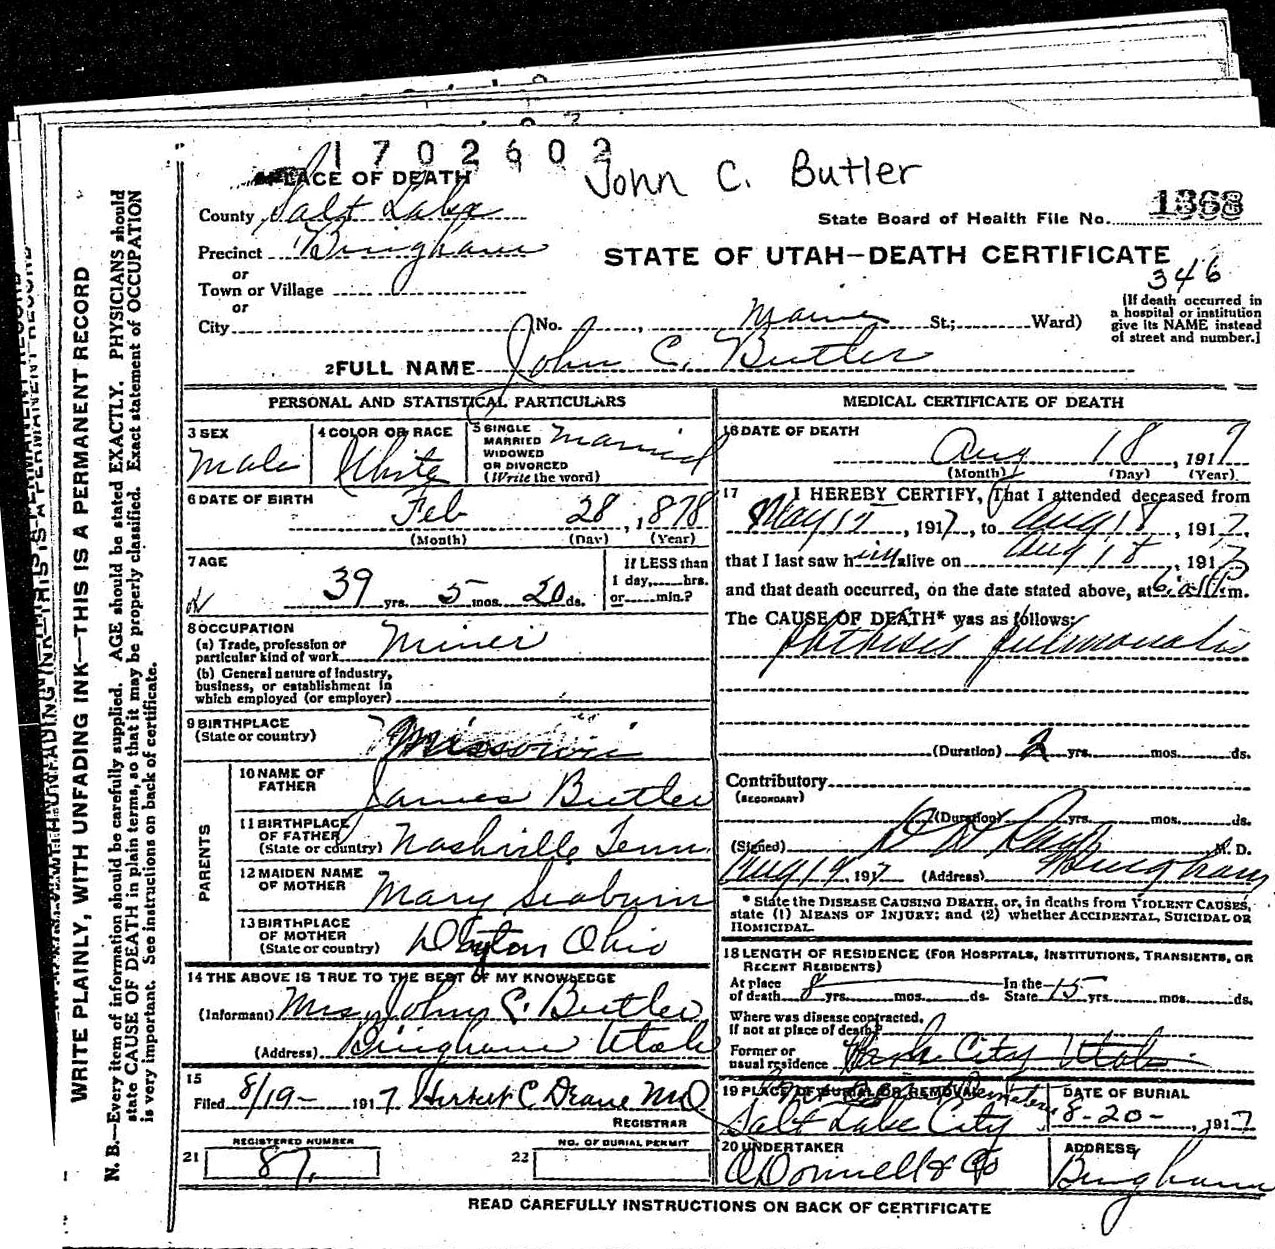 1702602
John C. Butler
PLACE OF DEATH
County Salt Lake
State Board of Health File No. 1368
Precinct Bingham
STATE OF UTAH—DEATH CERTIFICATE
346
or
Town or Village
or
City No. , Main St.; Ward)
[If death occurred in a hospital or institution give its NAME instead of street and number.]
2 FULL NAME John C. Butler
PERSONAL AND STATISTICAL PARTICULARS
3 SEX
Male
4 COLOR OR RACE
White
5 SINGLE
MARRIED
WIDOWED
OR DIVORCED
(Write the word)
Married
6 DATE OF BIRTH
Feb 28, 1878
(Month) (Day) (Year)
7 AGE
39 yrs. 5 mos. 20 ds.
If LESS than
1 day, hrs.
or min.?
8 OCCUPATION
(a) Trade, profession or
particular kind of work Miner
(b) General nature of industry,
business, or establishment in
which employed (or employer)
9 BIRTHPLACE
(State or country) Missouri
PARENTS
10 NAME OF
FATHER James Butler
11 BIRTHPLACE
OF FATHER
(State or country) Nashville Tenn.
12 MAIDEN NAME
OF MOTHER Mary Seaburn
13 BIRTHPLACE
OF MOTHER
(State or country) Dayton Ohio
14 THE ABOVE IS TRUE TO THE BEST OF MY KNOWLEDGE
(Informant) Mrs John C. Butler
(Address) Bingham Utah
15
Filed 8/19- 1917 Herbert C Deane M.D.
REGISTRAR
21 REGISTERED NUMBER
87.
22 NO. OF BURIAL PERMIT
MEDICAL CERTIFICATE OF DEATH
16 DATE OF DEATH
Aug 18, 1917
(Month) (Day) (Year)
17 I HEREBY CERTIFY, That I attended deceased from
May 15, 1917, to Aug 18, 1917,
that I last saw him alive on Aug 18, 1917
and that death occurred, on the date stated above, at m.
The CAUSE OF DEATH* was as follows:
phthisis pulmonalis
(Duration) 2 yrs. mos. ds.
Contributory
(SECONDARY)
(Duration) yrs. mos. ds.
(Signed) M. D.
Aug 19 1917 (Address) Bingham
* State the DISEASE CAUSING DEATH, or, in deaths from VIOLENT CAUSES,
state (1) MEANS OF INJURY; and (2) whether ACCIDENTAL, SUICIDAL OR
HOMICIDAL.
18 LENGTH OF RESIDENCE (FOR HOSPITALS, INSTITUTIONS, TRANSIENTS, OR
RECENT RESIDENTS)
At place
of death 8 yrs. mos. ds.
In the
State 15 yrs. mos. ds.
Where was disease contracted,
if not at place of death?
Former or
usual residence Park City Utah
19 PLACE OF BURIAL OR REMOVAL
Salt Lake City
DATE OF BURIAL
8-20-, 1917
20 UNDERTAKER
O'Donnell & Co
ADDRESS
Bingham
READ CAREFULLY INSTRUCTIONS ON BACK OF CERTIFICATE
WRITE PLAINLY, WITH UNFADING INK—THIS IS A PERMANENT RECORD
N. B.—Every item of information should be carefully supplied. AGE should be stated EXACTLY. PHYSICIANS should
state CAUSE OF DEATH in plain terms, so that it may be properly classified. Exact statement of OCCUPATION
is very important. See instructions on back of certificate.